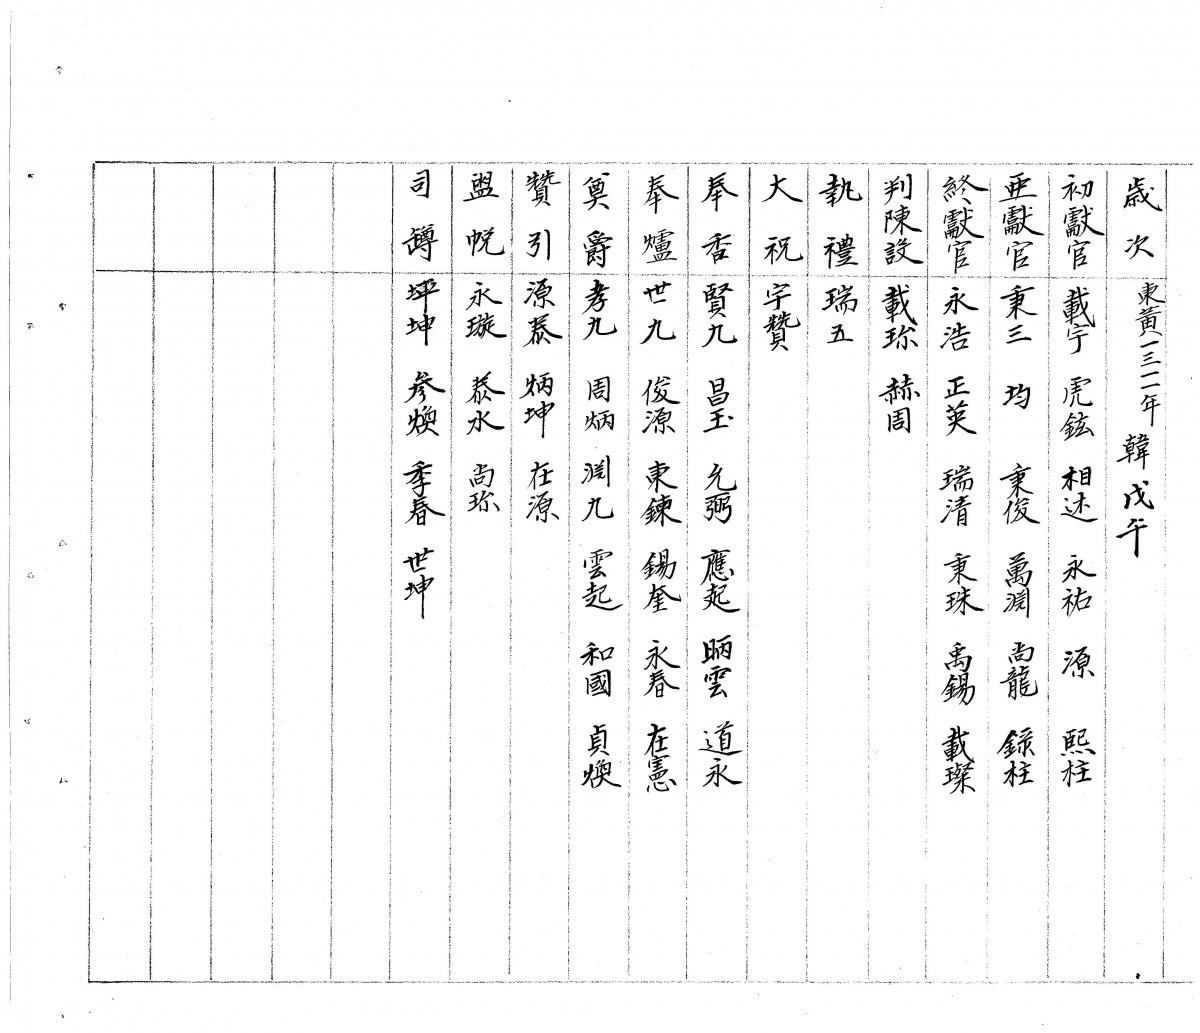 歲次 東黃一三一一年 韓戊午
初獻官 載宇 虎鉉 相述 永祐 源 熙柱
亜獻官 秉三 均 秉俊 萬淵 尚龍 錄柱
終獻官 永浩 正英 瑞清 秉珠 禹錫 載璨
判陳設 載珎 赫周
執禮 瑞五
大祝 宇贊
奉香 賢九 昌玉 允弼 應起 昞雲 道永
奉爐 世九 俊源 東鍊 錫奎 永春 在憲
奠爵 孝九 周炳 渕九 雲起 和國 貞煥
贊引 源泰 炳坤 在源
盥帨 永璇 泰永 尚珎
司罇 坪坤 參煥 季春 世坤